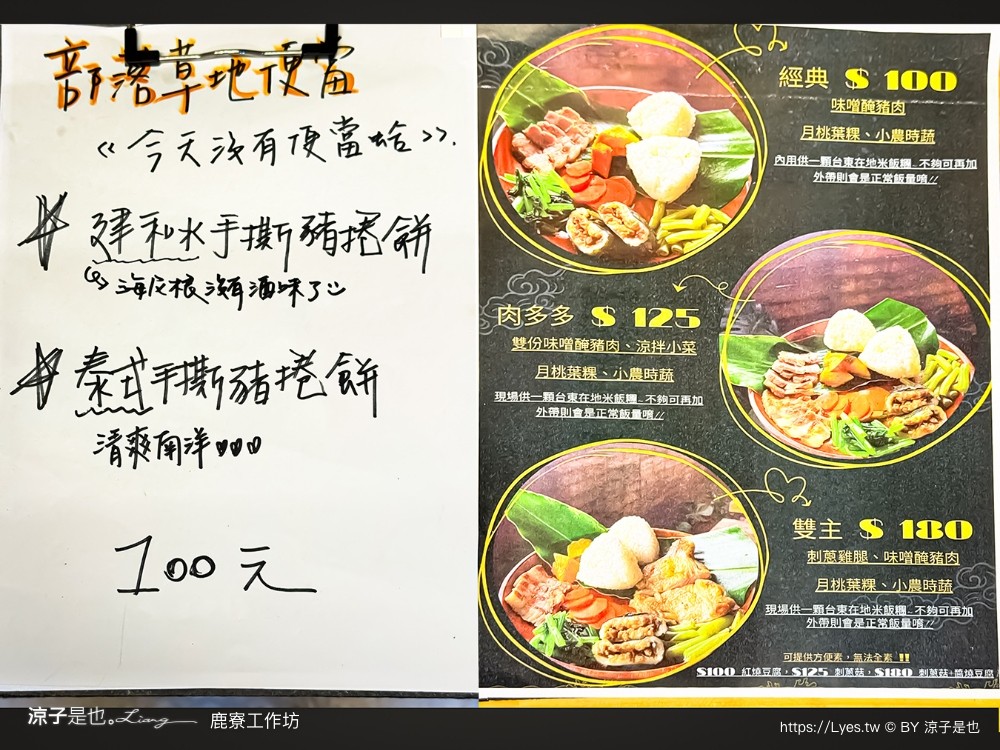 部落草地便當
《今天沒有便當啥》.
建和水手撕豬捲餅
泰式手撕豬捲餅
清爽南洋
100元
經典 $ 100
味噌醃豬肉
月桃葉粿、小農時蔬
內用供一顆台東在地米飯糰~不夠可再加
外帶則會是正常飯量唷!!
肉多多 $ 125
雙份味噌醃豬肉、涼拌小菜
月桃葉粿、小農時蔬
現場供一顆台東在地米飯糰~不夠可再加
外帶則會是正常飯量唷!!
雙主 $ 180
刺蔥雞腿、味噌醃豬肉
月桃葉粿、小農時蔬
現場供一顆台東在地米飯糰~不夠可再加
外帶則會是正常飯量唷!!
可提供方便素，無法全素 !!
$100 紅燒豆腐，$125 刺蔥菇，$180 刺蔥菇+醬燒豆腐
涼子是也。Liang 鹿寮工作坊
https://Lyes.tw © BY 涼子是也